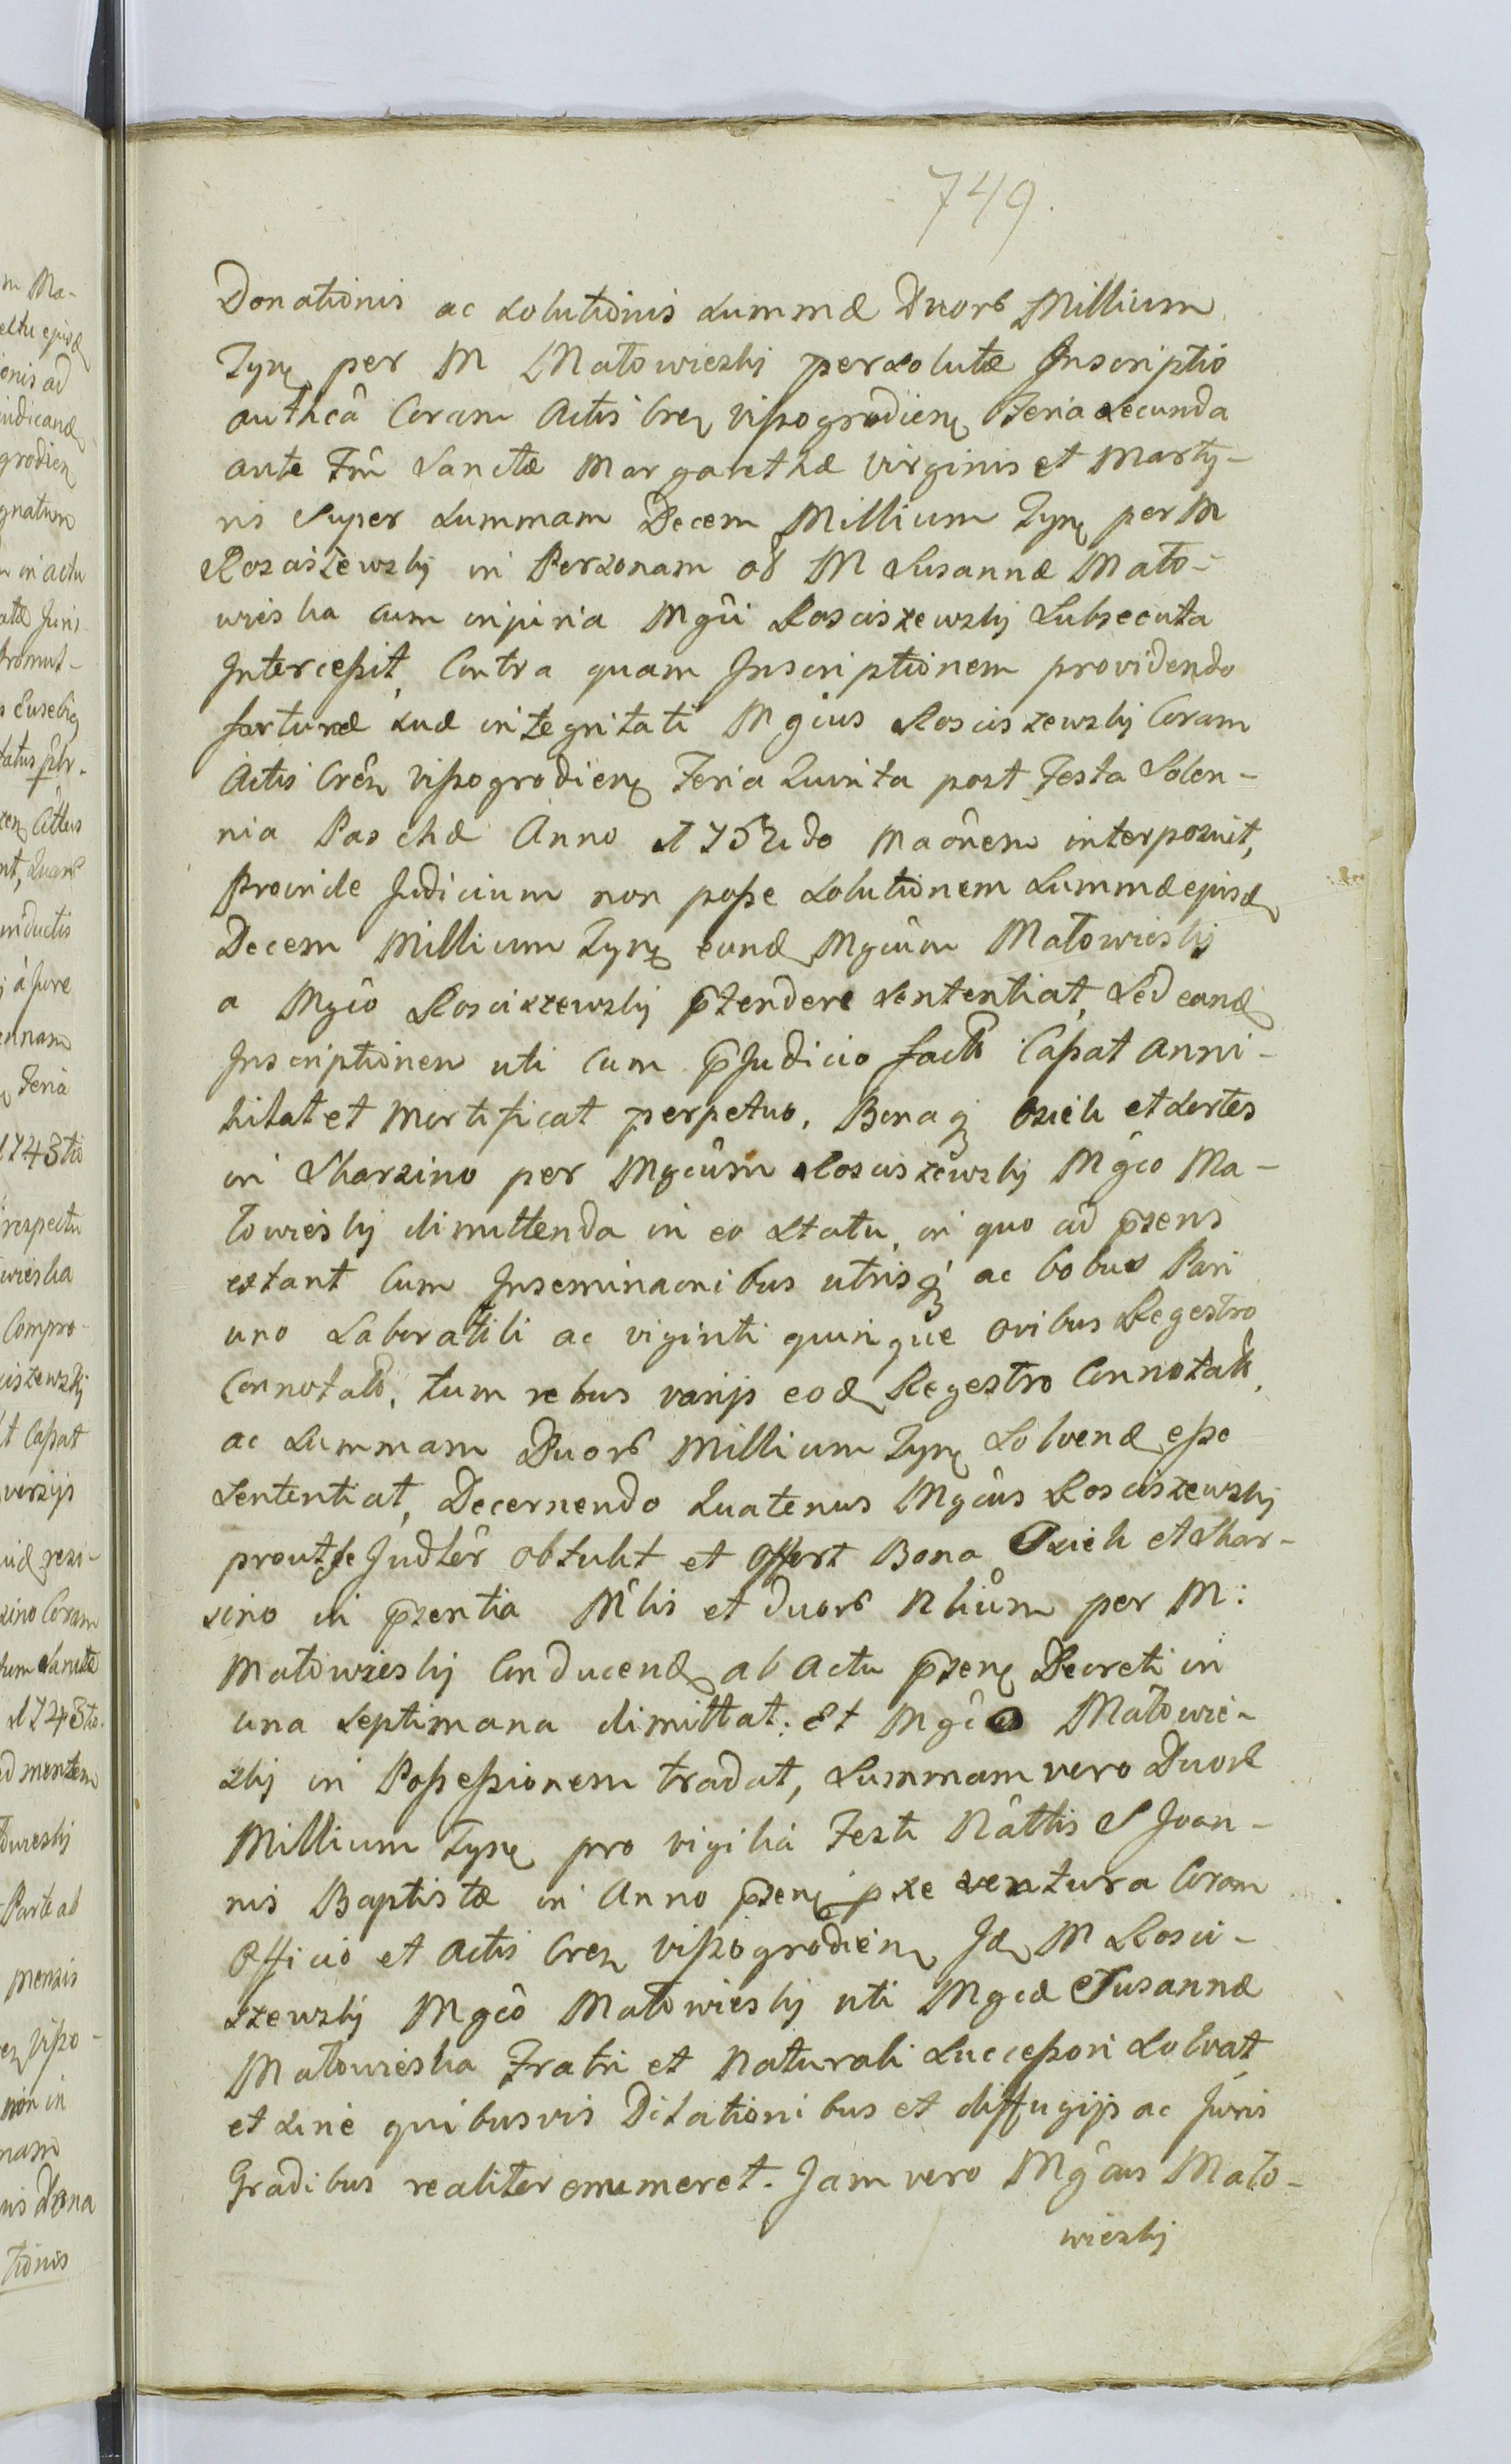 749.
Donationis ac Solutionis Summæ Duorb Millium
Tynf per M Małowieski persolutæ Inscriptio
authca Coram Actis Cren Vissogrodien Feria Secunda
ante Fm̃ Sanctæ Margarethæ Virginis et Marty-
ris Super Summam Decem Millium Tynf per M
Rosciszewski in Personam od M Susannæ Mało-
wieska cum injuria Mgĉi Rosciszewski Subsecuta
Intercessit, Contra quam Inscriptionem providendo
fortunæ suæ integritati Mgcus Rosciszewski Coram
Actis Crên Vissogrodien Feria Quinta post Festa Solen-
nia Paschæ Anno 1752do Maônem interposuit,
Proinde Judicium non posse Solutionem Summæ ejusd
Decem Millium Tynf eund Mgcûm Małowieski
a Mgĉo Rosciszewski p̃tendere Sententiat, Sed eand
Inscriptionem uti cum p̃Judicio factâ Cassat anni-
hilat et Mortificat perpetuo, Bonaq Osiek et Sortes
in Skarzino per Mgcûm Rosciszewski Mgĉo Ma-
łowieski dimittenda in eo Statu, in quo ad p̃sens
extant Cum Inseminaonibus utrisq ac bobus Pari
uno Laboratili ac viginti quinque ovibus Regestro
Connotatis, tum rebus varijs eod Regestro Connotatis,
ac Summam Duorb Millium Tynf Solvend esse
Sententiat, Decernendo Quatenus Mgĉus Rosciszewski
prout se Judlêr obtulit et offert Bona Osiek et Skar-
zino in p̃sentia Mlis et duorb Nliûm per M:
Małowieski Conducend, ab Actu p̃sen Decreti in
una Septimana dimittat: Et Mgĉo Małowie-
ski in Possessionem tradat, Summam vero Duorb
Millium Tynf pro vigilia Festi Nâttis S Joan-
nis Baptistæ in Anno p̃sen pxe ventura Coram
Officio et Actis Cren Vissogrodien Id M Rosci-
szewski Mgĉo Małowieski uti Mgcæ Susannæ
Małowieska Fratri et Naturali Successori Solvat
et Sine quibusvis Dilationibus et diffugijs ac Juris
Gradibus realiter enumeret. Jam vero Mgĉus Mało-
wieski